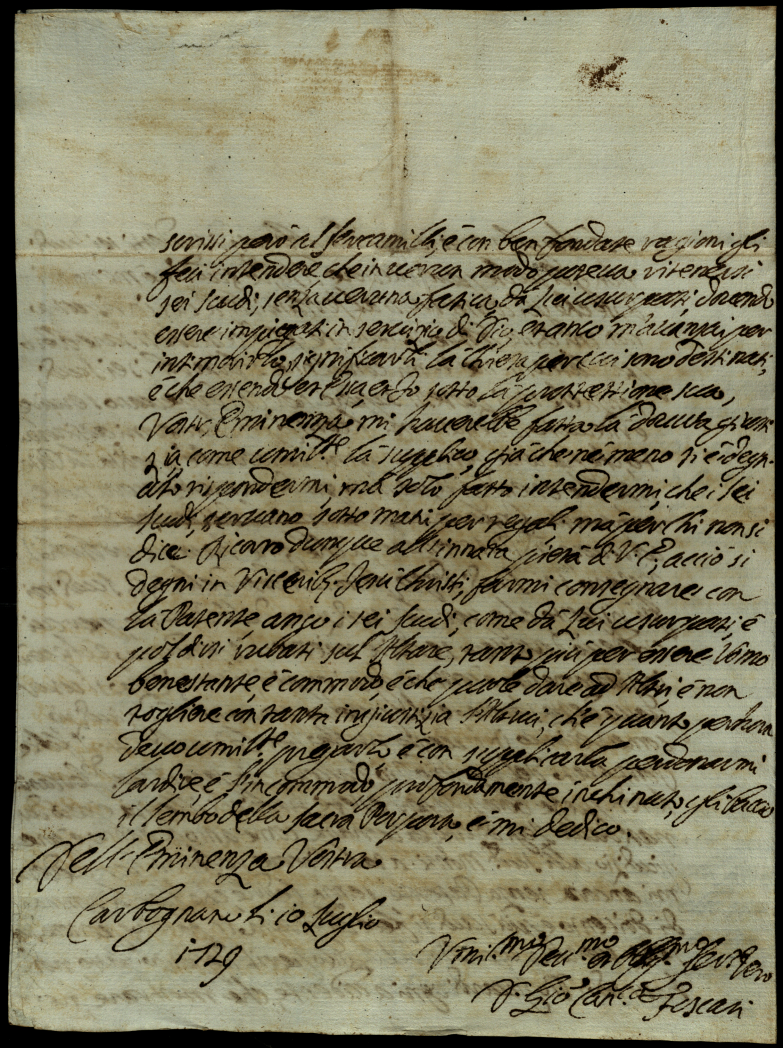 scrissi però al Sercamilli, è con ben fondate ragioni gli
feci intendere che in verun modo poteva ritenersi
sei scudi, senza veruna fatica, dà Lui usurpati, dovendo
essere impiegati in servizio di Dio, et anco m'avanzai per
intimorirlo, significarli la Chiesa per cui sono destinati,
è che essendo et sotto la prottettione sua,
Vostra Eminenza mi haverebbe fatta la dovuta giusti
zia come umil.te la supplico, già che nè meno si è degn-
ato rispondermi, mà solo fatto intendermi, che i sei
scudi, servano sotto mani per regali mà per chi non si
dice. Ricorro dunque all'innata pietà di V. E., acciò si
degni in Visceribus Jesu Christi, farmi consegnare con
la Patente anco i sei scudi, come dà Lui usurpati, è
può dirsi rubati sul Altare, tanto più per essere Uomo
benestante, è commodo, è che puole dare ad Altri, è non
togliere con tanta ingiustizia Altrui, che è quanto per hora
devo umil.te pregarlo, è con supplicarla perdonarmi
l'ardire, è l'incommodo, profondamente inchinato, gli bacio
il lembo della Sacra Porpora, è mi dedico.
Dell'Eminenza Vostra
Carbognano li 10 Luglio
1729
Umil.mo Dev.mo et Obl.mo Ser.re Vero
D. Gio. Foscari